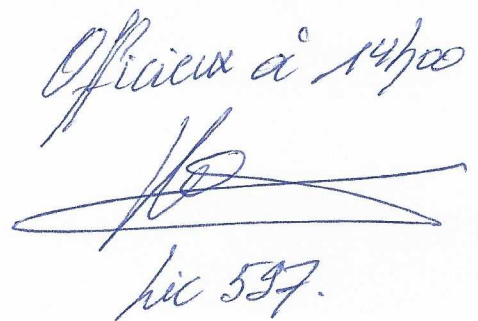 Officieux à 14h00
Lic 597.